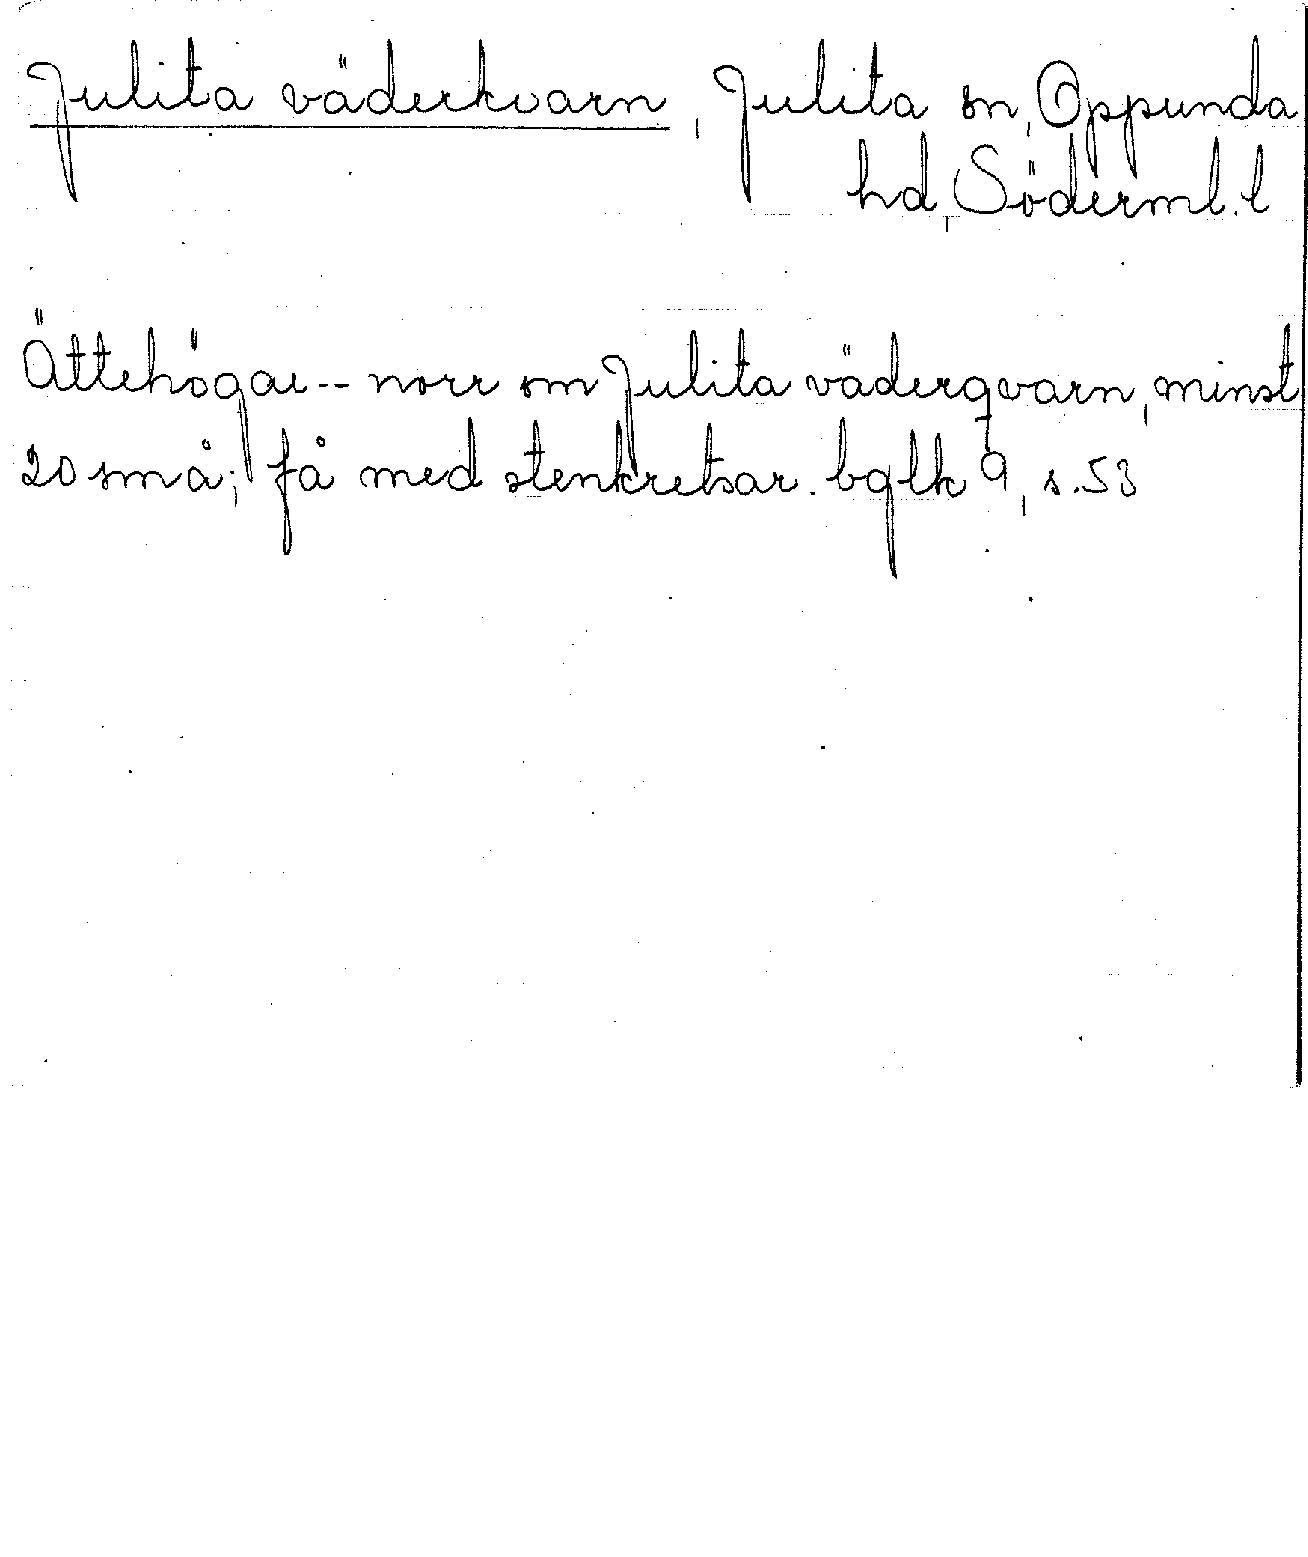 Julita väderkvarn, Julita sn, Oppunda
hd, Söderml. l
Ättehögar -- norr om Julita väderqvarn, minst
20 små; få med stenkretsar. bglk 9, s. 53